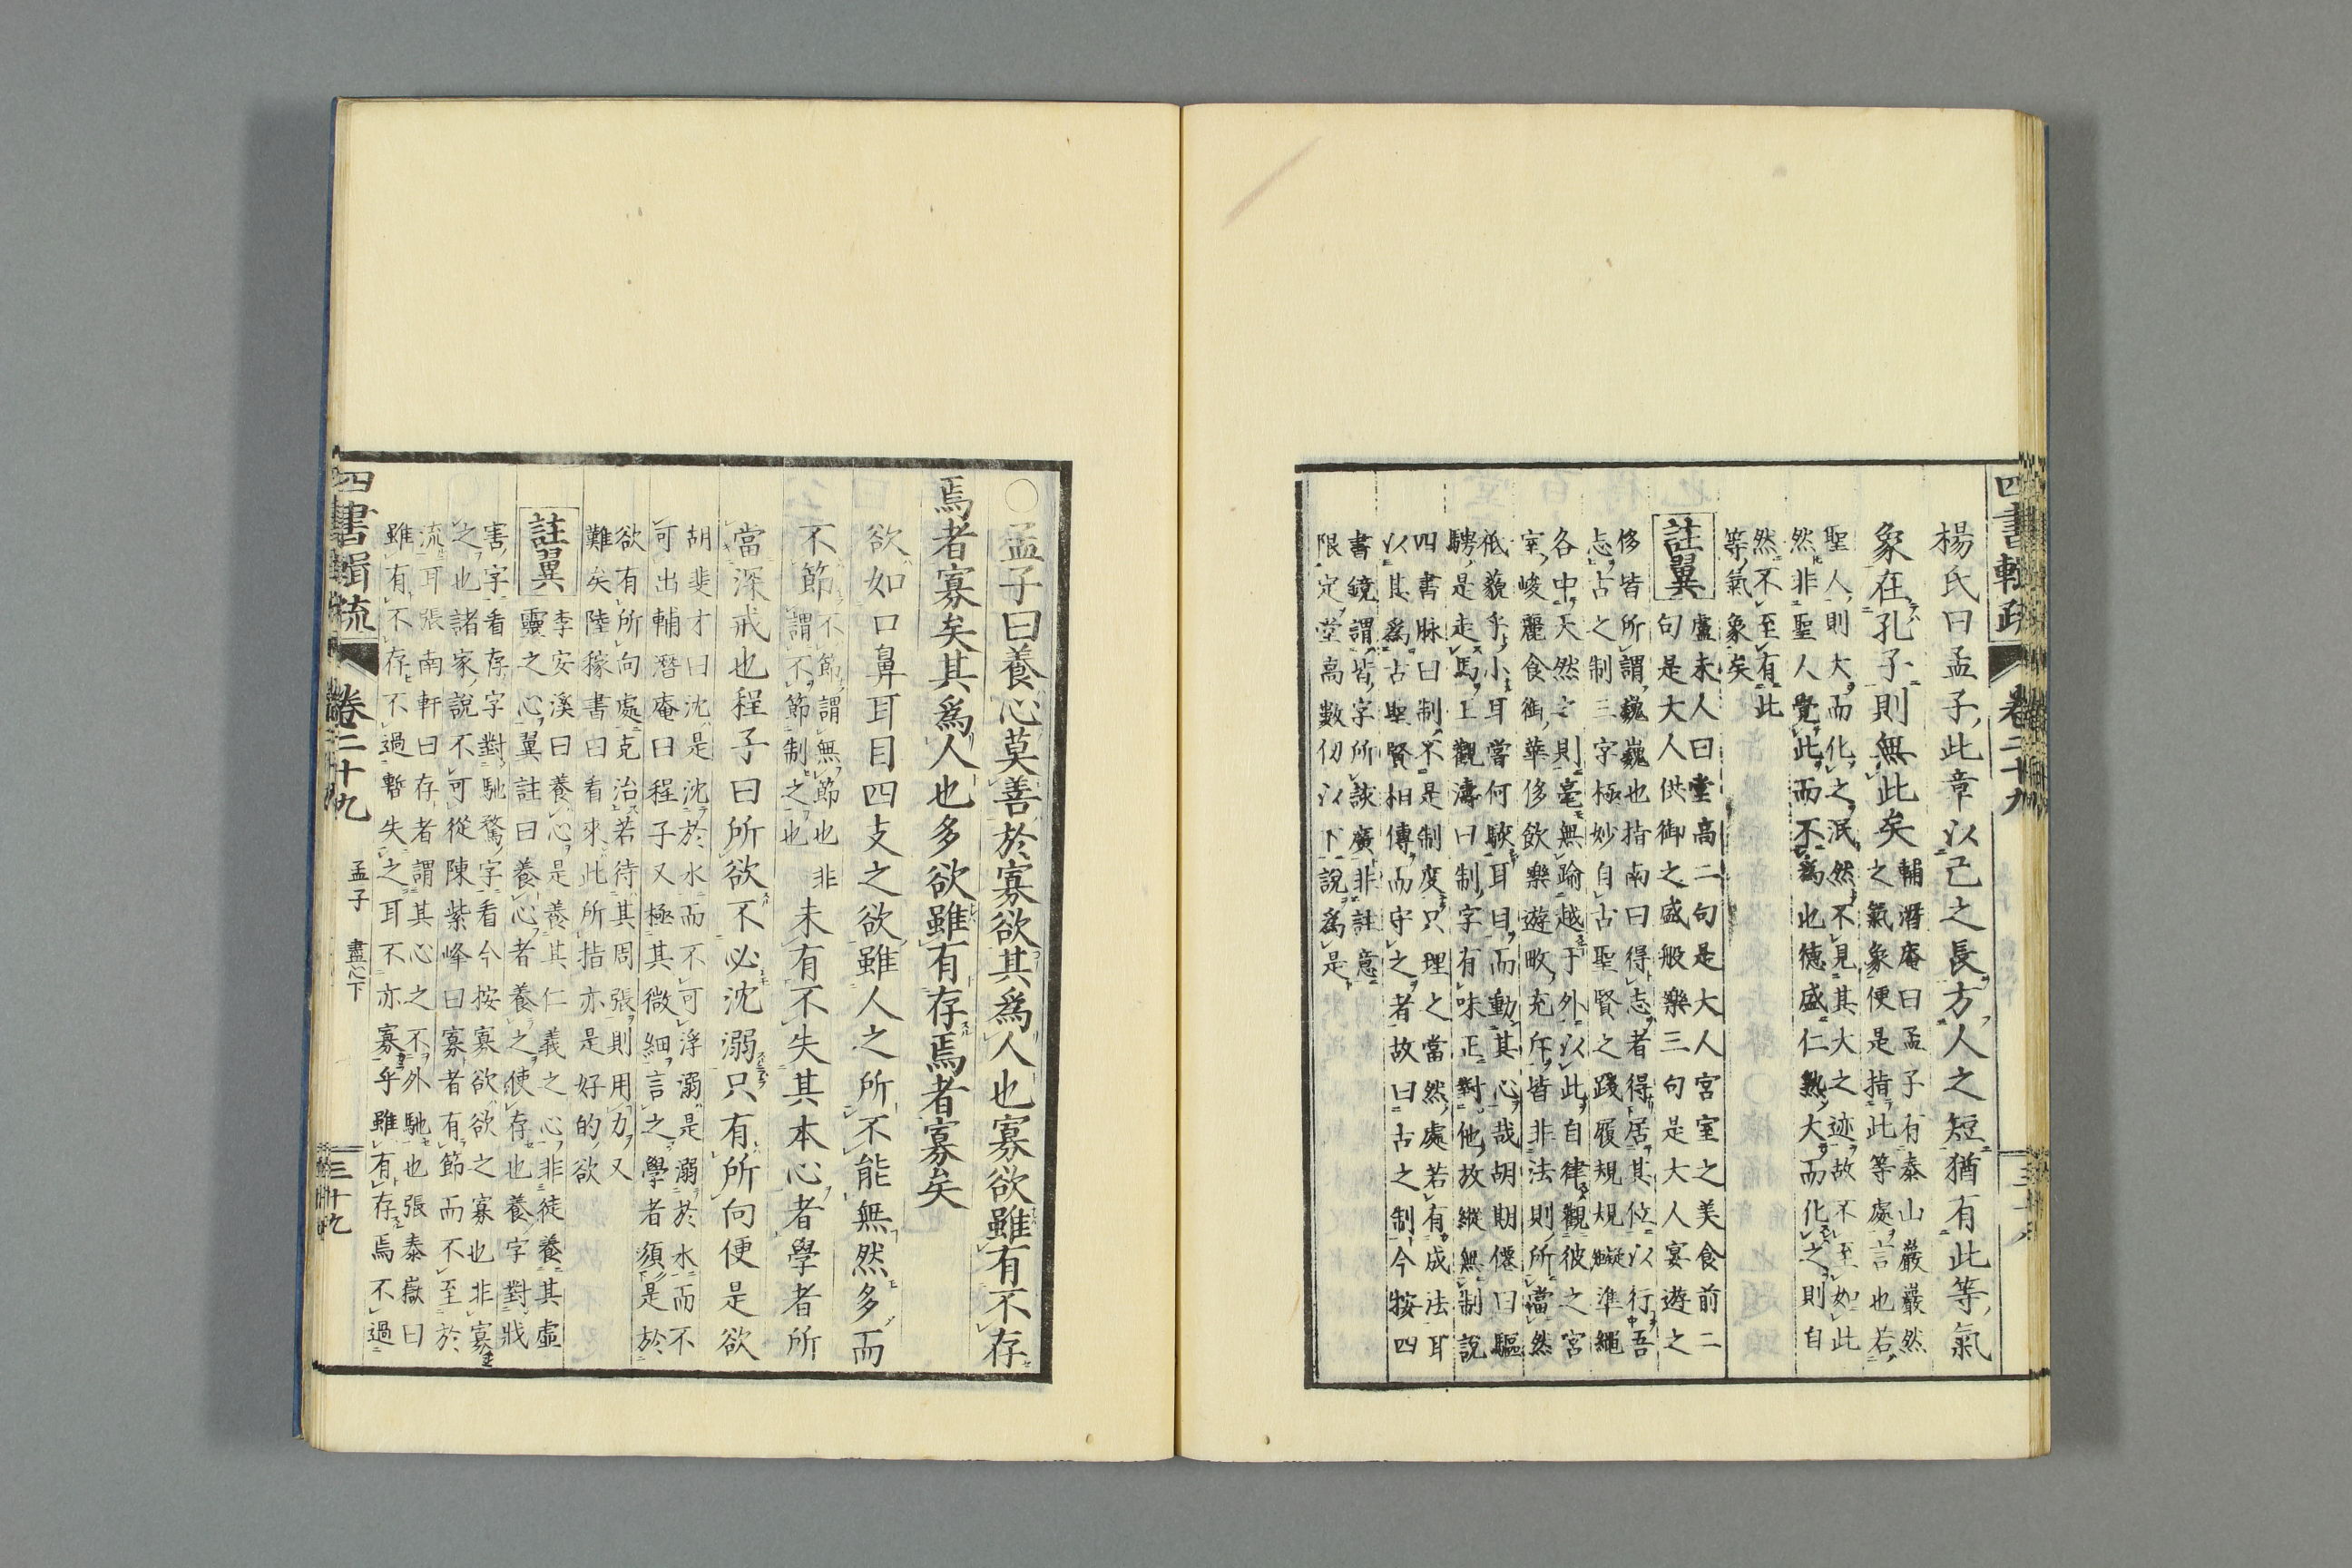 楊氏曰孟子此章以己之長方人之短猶有此等氣
象在孔子則無此矣
輔潛庵曰孟子有泰山巖巖然
之氣象便是指此等處言也若
聖人則大而化之泯然不見其大之迹故不至如此
然非聖人覺此而不爲也德盛仁熟大而化之則自
然不至有此
等氣象矣
註翼
盧未人曰堂高二句是大人宮室之美食前二
句是大人供御之盛般樂三句是大人宴遊之
侈皆所謂巍巍也指南曰得志者得居其位以行吾
志古之制三字極妙自古聖賢之踐履規規礙準繩
各中天然之則毫無踰越于外以此自律觀彼之宮
室峻麗食御華侈飲樂遊畋充斥皆非法則所當然
祇藐乎小耳當何駭耳目而動其心哉胡期僊曰驅
騁是走馬上觀濤曰制字有味正對他故縱無制說
四書脉曰制不是制度只理之當然處若有成法耳
以其爲古聖賢相傳而守之者故曰古之制今按四
書鏡謂皆字所該廣非註意
限定堂高數仞以下說爲是
四書輯疏
卷二十九
〇孟子曰養心莫善於寡欲其爲人也寡欲雖有不存
焉者寡矣其爲人也多欲雖有存焉者寡矣
欲如口鼻耳目四支之欲雖人之所不能無然多而
不節
不節謂無節也非
謂不節制之也
未有不失其本心者學者所
當深戒也程子曰所欲不必沈溺只有所向便是欲
胡斐才曰沈是沈於水而不可浮溺是溺於水而不
可出輔潛庵曰程子又極其微細言之學者須是於
欲有所向處克治若待其周張則用力又
難矣陸稼書曰看來此所指亦是好的欲
註翼
李安溪曰養心是養其仁義之心非徒養其虛
靈之心翼註曰養心者養之使存也養字對戕
害字看存字對馳騖字看今按寡欲欲之寡也非寡
之也諸家說不可從陳紫峰曰寡者有節而不至於
流耳張南軒曰存者謂其心之不外馳也張泰嶽曰
雖有不存不過暫失之耳不亦寡乎雖有存焉不過
四書輯疏
卷二十九
孟子
盡心下
三十九